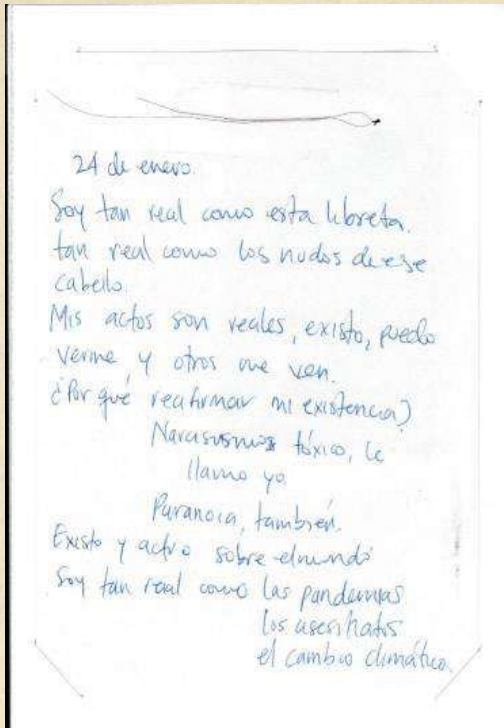 24 de enero.
Soy tan real como esta libreta.
tan real como los nudos de ese
cabello.
Mis actos son reales, existo, puedo
verme y otros me ven.
¿Por qué reafirmar mi existencia?
Narcisismos tóxico, le
llamo yo
Paranoia, también.
Existo y actúo sobre el mundo
Soy tan real como las pandemias
los asesinatos
el cambio climático.